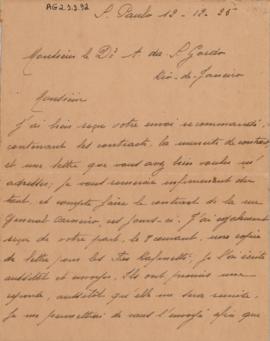 AG2.3.3.92
S. Paulo 12-12-25
Monsieur le Dr A de S. Gordo
Rio-de-Janeiro
Monsieur
J'ai bien reçu votre envoi recommandé
contenant les contracts, la minute de contract
et une lettre que vous avez bien voulu m'
adresser; Je vous remercie infiniment du
tout, et compte faire le contract de la rue
General Carneiro, ces jours-ci. J'ai également
reçu de votre part, le courant, une copie
de lettre pour les J'ai l'écrite
aussitôt et envoyée. Ils ont promis une
reponse, aussitôt qu'elle me sera remise,
Je me permettrai de vous l'envoyé afin que